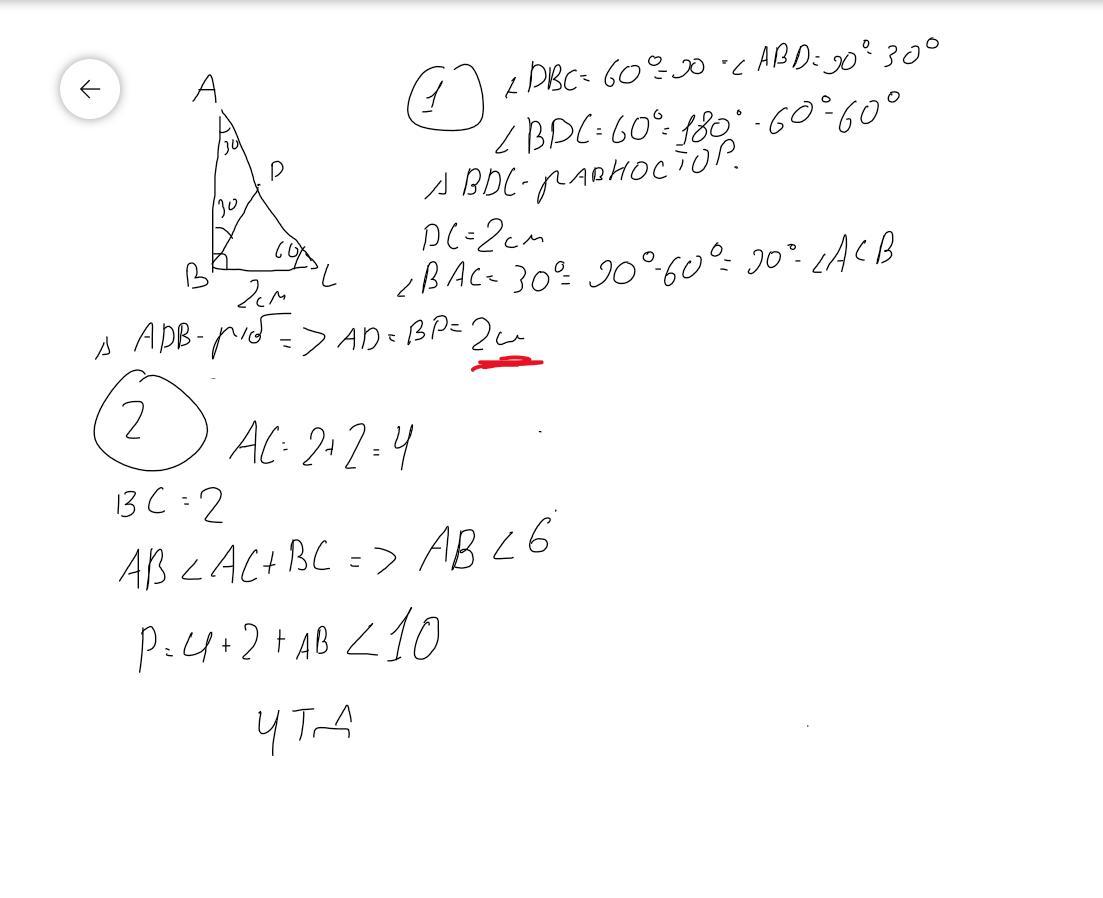 A
30
D
30
60
B
C
2см
1
∠DBC = 60° = 90 - ∠ABD = 90° - 30°
∠BDC = 60° = 180° - 60° - 60°
Δ BDC - равностор.
DC = 2см
∠BAC = 30° = 90° - 60° = 90° - ∠ACB
Δ ADB - р/б => AD = BD = 2см
2
AC = 2 + 2 = 4
BC = 2
AB < AC + BC => AB < 6
P = 4 + 2 + AB < 10
ЧТД